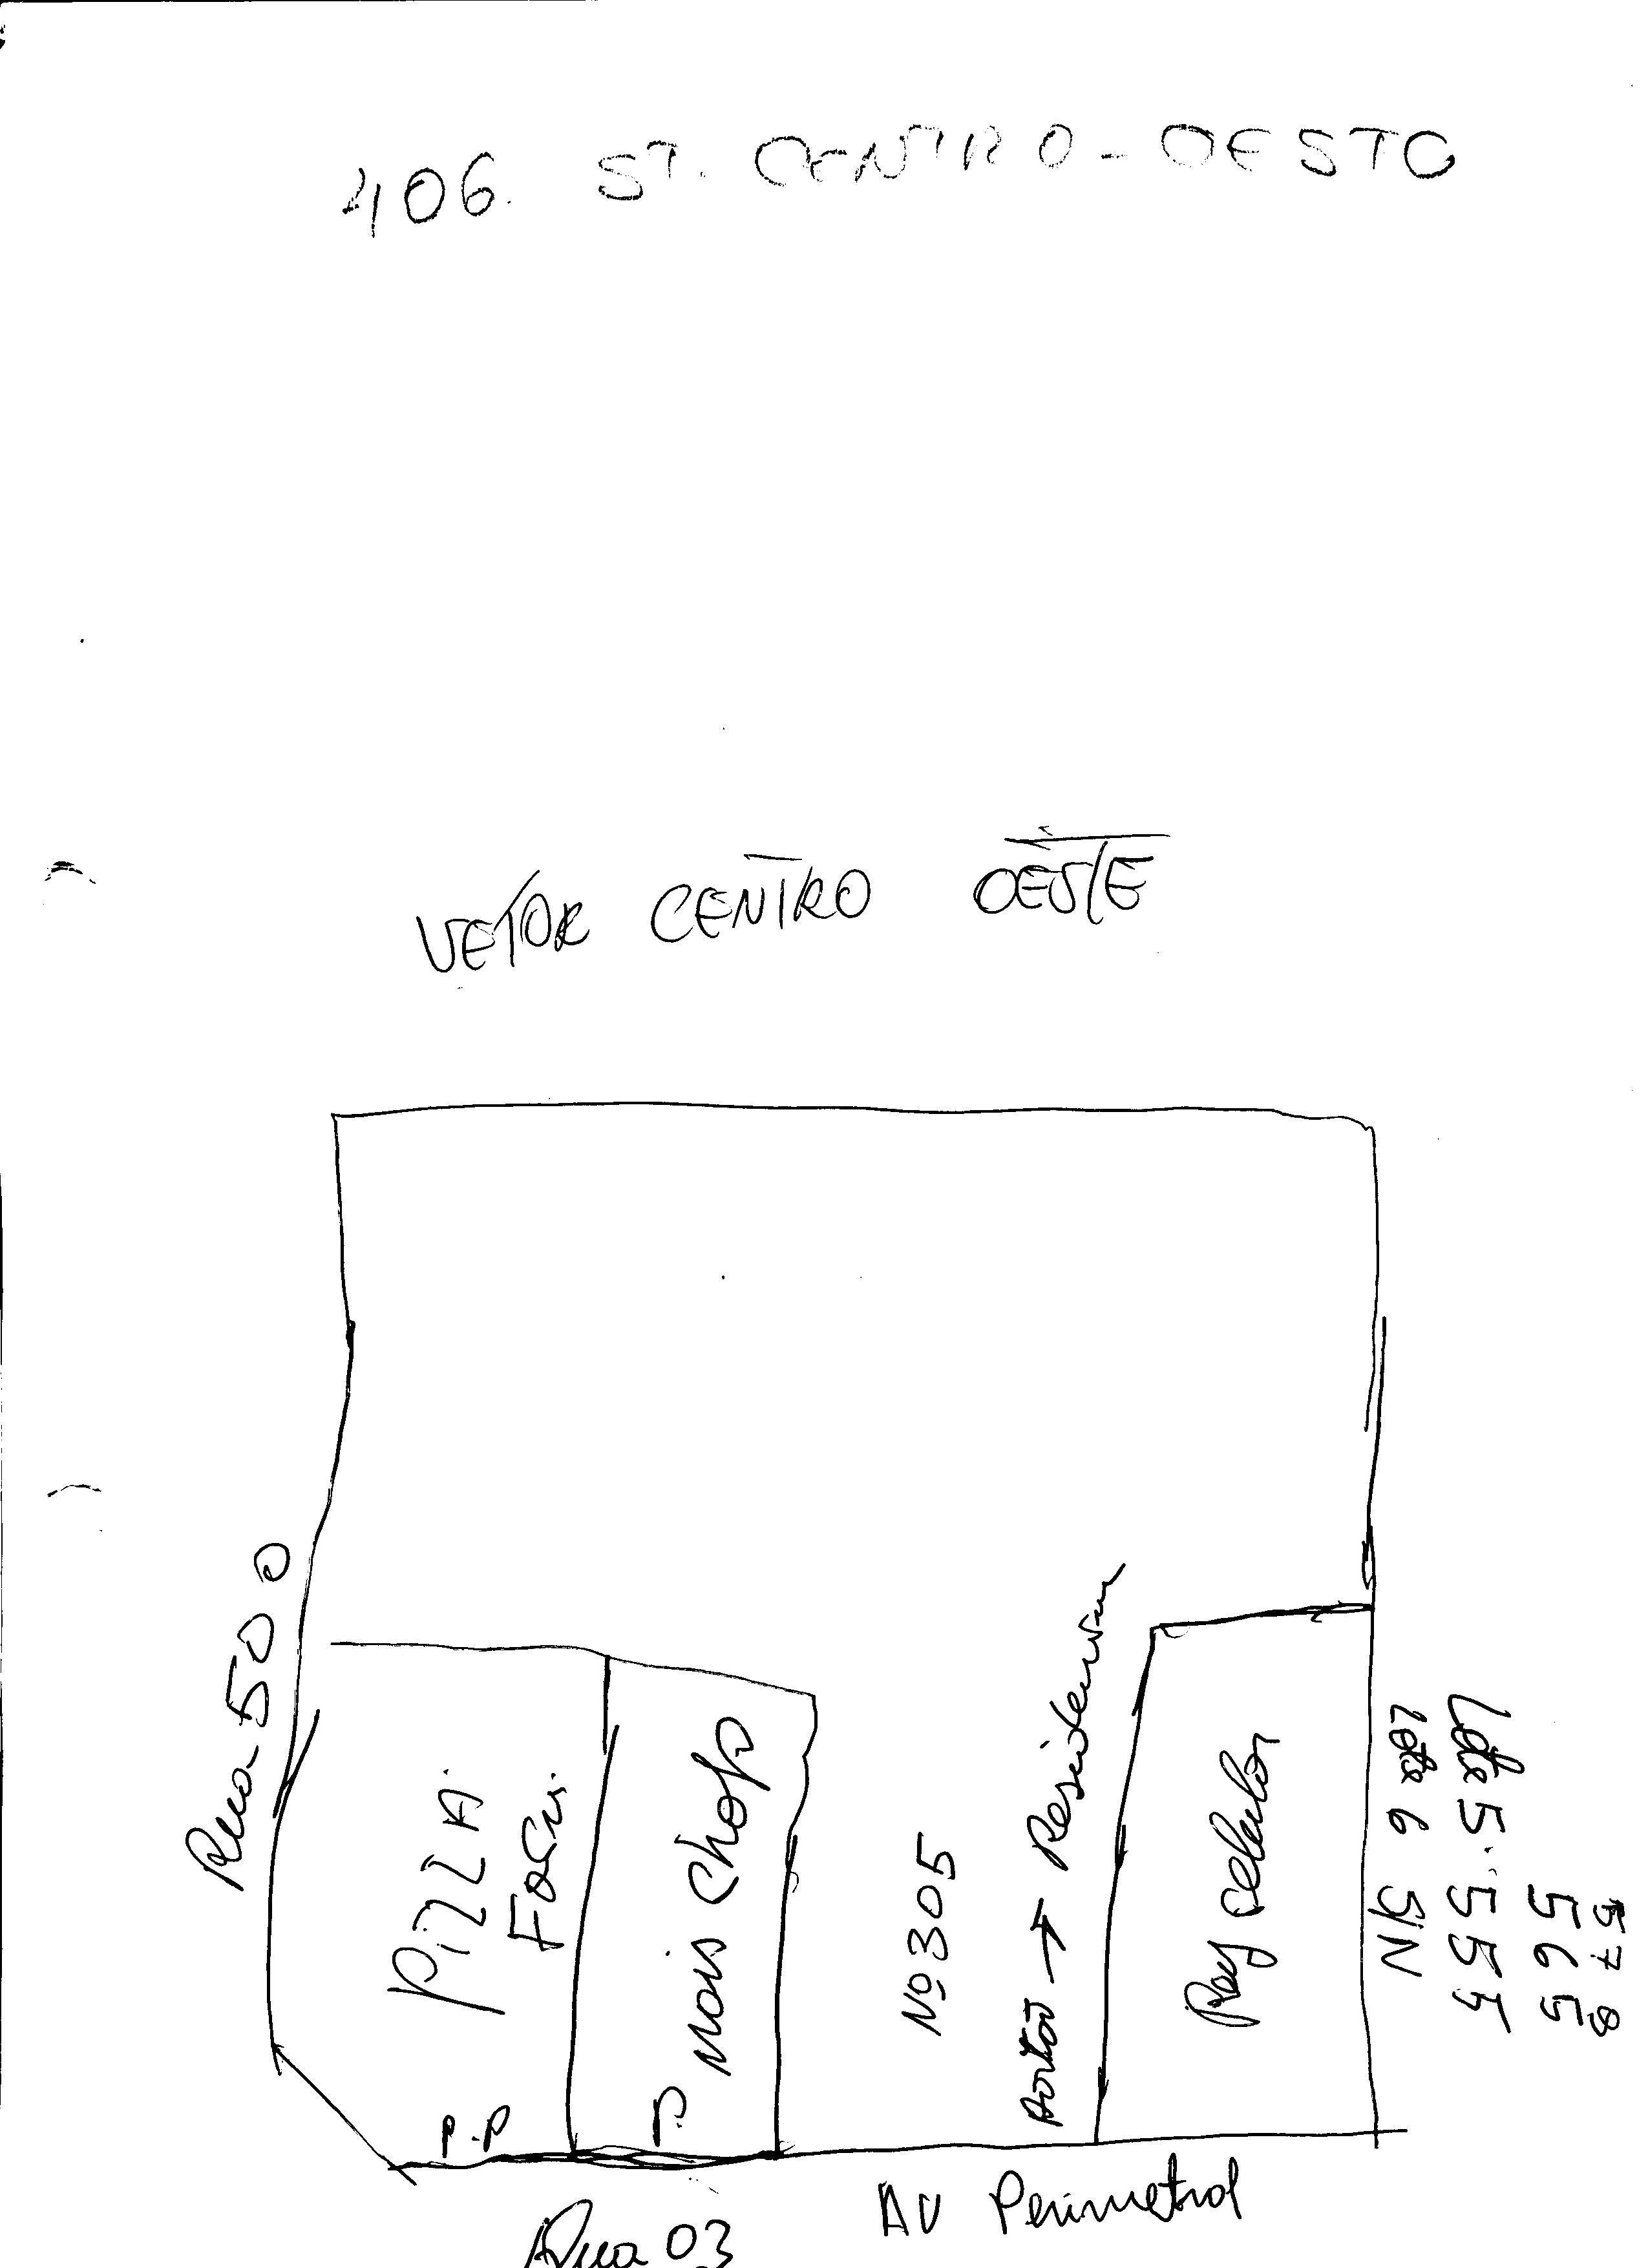 406. ST. CENTRO-OESTE
VETOR CENTRO OESTE
Rua 500
PiZZA
P.P
MAIS CHOPP
P
Nº 305
Portão → Residencia
Pag
Lote 5. 555
Lote 6 S/N
565
578
AV Perimetral
Rua 03